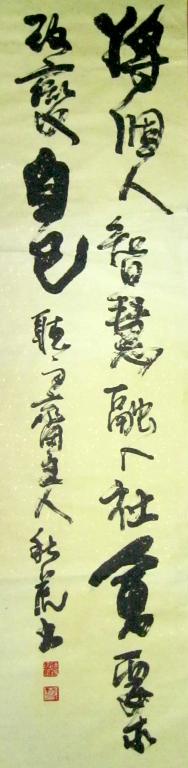 將個人智慧融入社會要求
改變自己 聽雨齋主人秋荒書